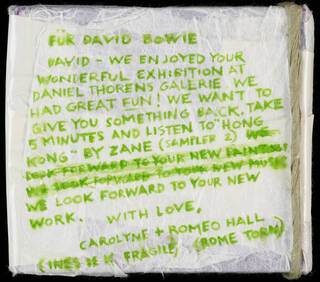 FÜR DAVID BOWIE
DAVID - WE ENJOYED YOUR
WONDERFUL EXHIBITION AT
DANIEL THORENS GALERIE. WE
HAD GREAT FUN! WE WANT TO
GIVE YOU SOMETHING BACK. TAKE
5 MINUTES AND LISTEN TO "HONG
KONG" BY ZANE (SAMPLER 2) WE
LOOK FORWARD TO YOUR NEW
WE LOOK FORWARD TO YOUR NEW MUSIC
WE LOOK FORWARD TO YOUR NEW
WORK. WITH LOVE,
CAROLYNE + ROMEO HALL
FRAGILE) (ROME TORN)